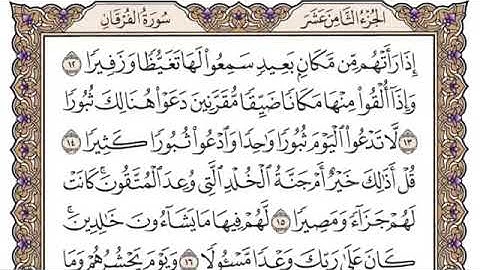 سُورَةُ الفُرْقَانِ الجُزْءُ الثَّامِنَ عَشَرَ
إِذَا رَأَتْهُم مِّن مَّكَانٍ بَعِيدٍ سَمِعُوا۟ لَهَا تَغَيُّظًا وَزَفِيرًا ١٢
وَإِذَآ أُلْقُوا۟ مِنْهَا مَكَانًا ضَيِّقًا مُّقَرَّنِينَ دَعَوْا۟ هُنَالِكَ ثُبُورًا
١٣ لَّا تَدْعُوا۟ ٱلْيَوْمَ ثُبُورًا وَٰحِدًا وَٱدْعُوا۟ ثُبُورًا كَثِيرًا ١٤
قُلْ أَذَٰلِكَ خَيْرٌ أَمْ جَنَّةُ ٱلْخُلْدِ ٱلَّتِى وُعِدَ ٱلْمُتَّقُونَ ۚ كَانَتْ
لَهُمْ جَزَآءً وَمَصِيرًا ١٥ لَّهُمْ فِيهَا مَا يَشَآءُونَ خَٰلِدِينَ ۚ
كَانَ عَلَىٰ رَبِّكَ وَعْدًا مَّسْـُٔولًا ١٦ وَيَوْمَ يَحْشُرُهُمْ وَمَا